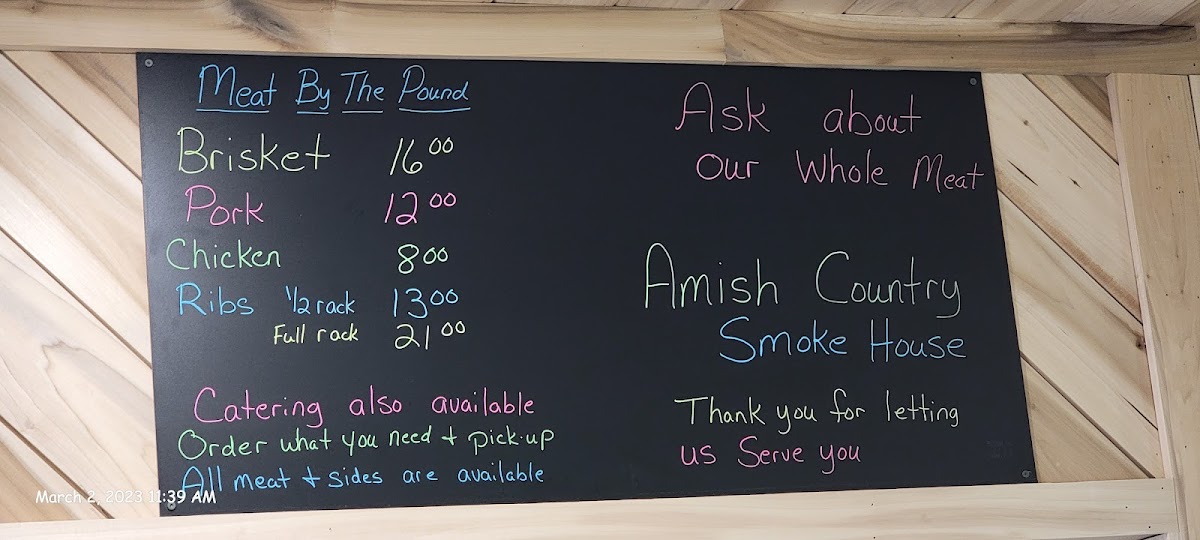 Meat By The Pound
Brisket 16.00
Pork 12.00
Chicken 8.00
Ribs 1/2 rack 13.00
Full rack 21.00
Catering also available
Order what you need + pick-up
All meat + sides are available
Ask about
our Whole Meat
Amish Country
Smoke House
Thank you for letting
us Serve you
March 2, 2023 11:39 AM